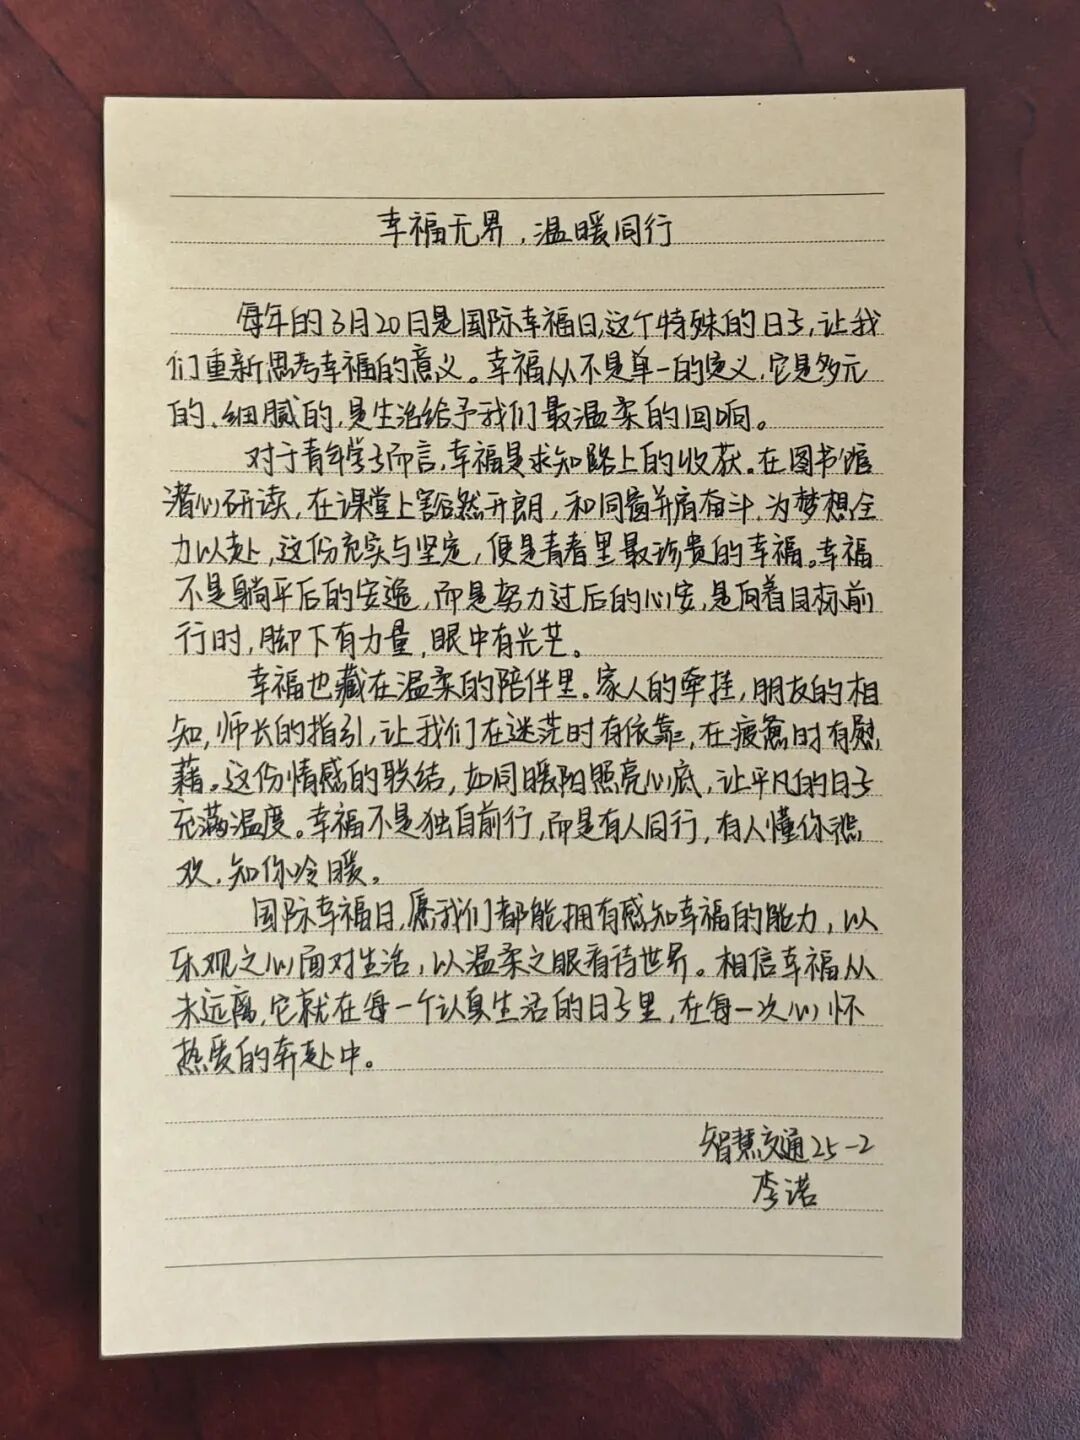 幸福无界,温暖同行
每年的3月20日是国际幸福日,这个特殊的日子,让我
们重新思考幸福的意义。幸福从不是单一的定义,它是多元
的、细腻的,是生活给予我们最温柔的回响。
对于青年学子而言,幸福是求知路上的收获。在图书馆
潜心研读,在课堂上豁然开朗,和同窗并肩奋斗,为梦想全
力以赴,这份充实与坚定,便是青春里最珍贵的幸福。幸福
不是躺平后的安逸,而是努力过后的心安,是向着目标前
行时,脚下有力量,眼中有光芒。
幸福也藏在温柔的陪伴里。家人的牵挂,朋友的相
知,师长的指引,让我们在迷茫时有依靠,在疲惫时有慰
藉。这份情感的联结,如同暖阳照亮心底,让平凡的日子
充满温度。幸福不是独自前行,而是有人同行,有人懂你悲
欢,知你冷暖。
国际幸福日,愿我们都能拥有感知幸福的能力,以
乐观之心面对生活,以温柔之眼看待世界。相信幸福从
未远离,它就在每一个认真生活的日子里,在每一次心怀
热爱的奔赴中。
智慧交通25-2
李诺